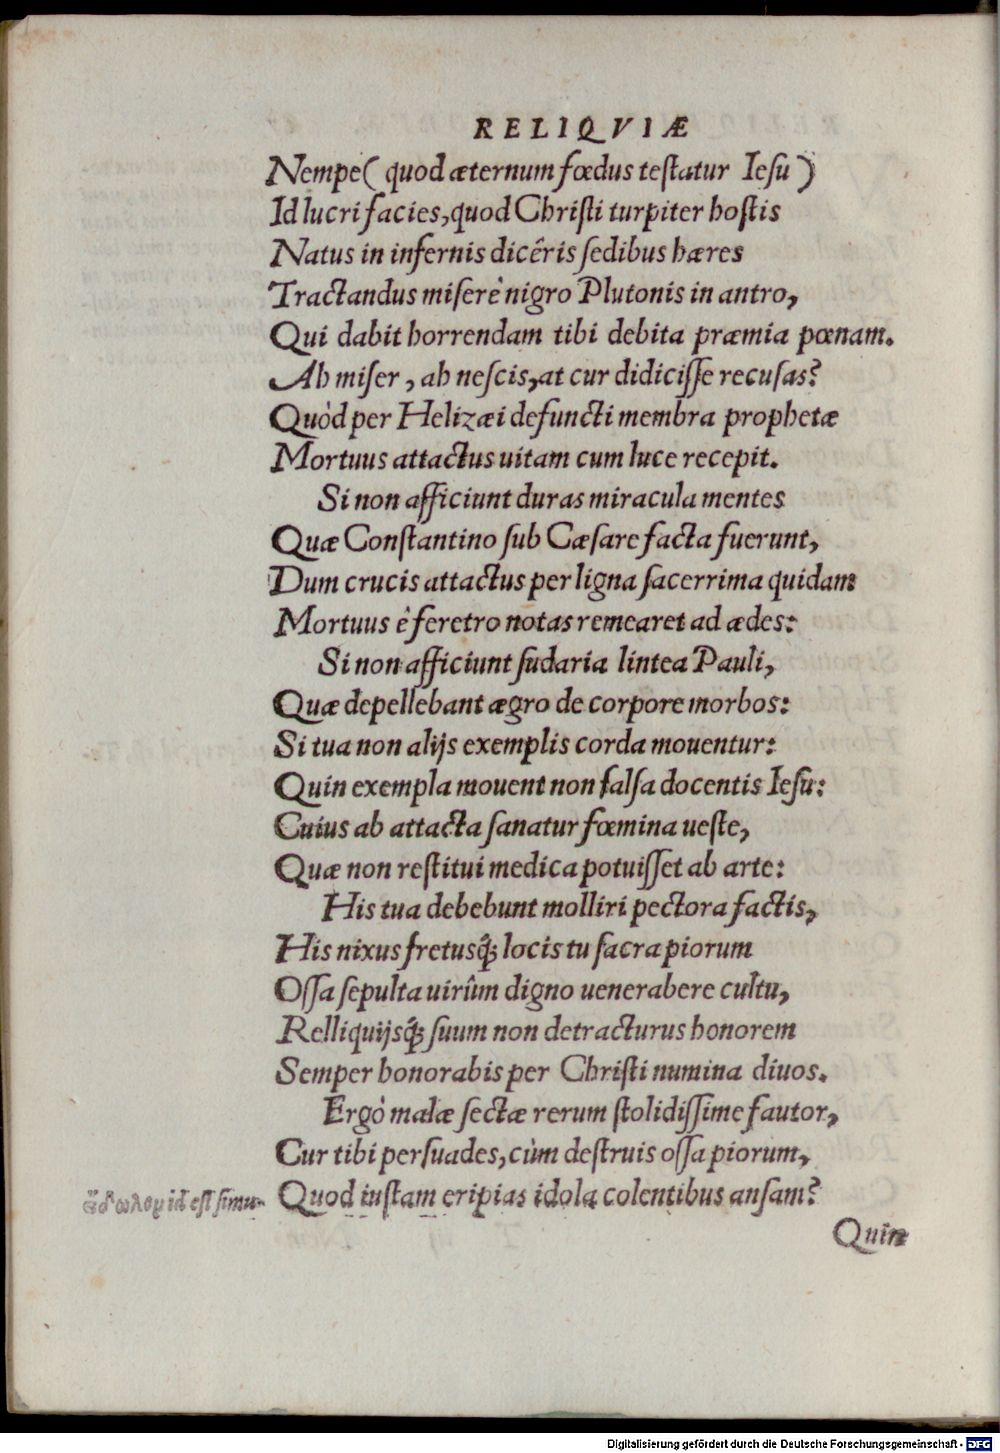 RELIQVIÆ
Nempe ( quod æternum fœdus testatur Iesu )
Id lucri facies, quod Christi turpiter hostis
Natus in infernis dicêris sedibus hæres
Tractandus miserè nigro Plutonis in antro,
Qui dabit horrendam tibi debita præmia pœnam.
Ah miser, ah nescis, at cur didicisse recusas?
Quòd per Helizæi defuncti membra prophetæ
Mortuus attactus uitam cum luce recepit.
Si non afficiunt duras miracula mentes
Quæ Constantino sub Cæsare facta fuerunt,
Dum crucis attactus per ligna sacerrima quidam
Mortuus è feretro notas remearet ad ædes:
Si non afficiunt sudaria lintea Pauli,
Quæ depellebant ægro de corpore morbos:
Si tua non alijs exemplis corda mouentur:
Quin exempla mouent non falsa docentis Iesu:
Cuius ab attacta sanatur fœmina ueste,
Quæ non restitui medica potuisset ab arte:
His tua debebunt molliri pectora factis,
His nixus fretusq́; locis tu sacra piorum
Ossa sepulta uirûm digno uenerabere cultu,
Relliquijsq́; suum non detracturus honorem
Semper honorabis per Christi numina diuos.
Ergò malæ sectæ rerum stolidissime fautor,
Cur tibi persuades, cùm destruis ossa piorum,
Quod iustam eripias idola colentibus ansam?
id est simu-
Quin
Digitalisierung gefördert durch die Deutsche Forschungsgemeinschaft - DFG